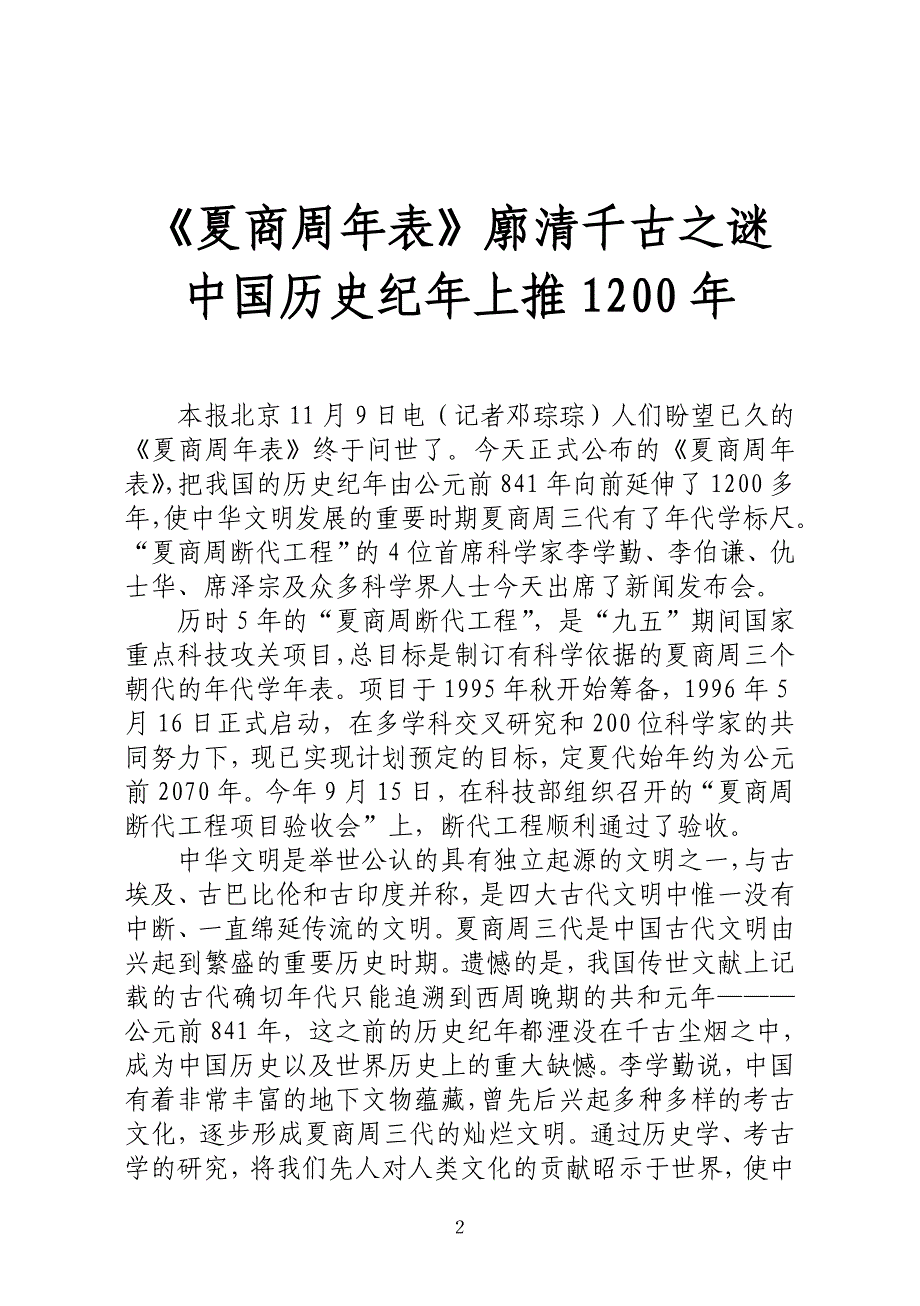 《夏商周年表》廓清千古之谜
中国历史纪年上推1200年
本报北京11月9日电（记者邓琮琮）人们盼望已久的
《夏商周年表》终于问世了。今天正式公布的《夏商周年
表》，把我国的历史纪年由公元前841年向前延伸了1200多
年，使中华文明发展的重要时期夏商周三代有了年代学标尺。
“夏商周断代工程”的4位首席科学家李学勤、李伯谦、仇
士华、席泽宗及众多科学界人士今天出席了新闻发布会。
历时5年的“夏商周断代工程”，是“九五”期间国家
重点科技攻关项目，总目标是制订有科学依据的夏商周三个
朝代的年代学年表。项目于1995年秋开始筹备，1996年5
月16日正式启动，在多学科交叉研究和200位科学家的共
同努力下，现已实现计划预定的目标，定夏代始年约为公元
前2070年。今年9月15日，在科技部组织召开的“夏商周
断代工程项目验收会”上，断代工程顺利通过了验收。
中华文明是举世公认的具有独立起源的文明之一，与古
埃及、古巴比伦和古印度并称，是四大古代文明中惟一没有
中断、一直绵延传流的文明。夏商周三代是中国古代文明由
兴起到繁盛的重要历史时期。遗憾的是，我国传世文献上记
载的古代确切年代只能追溯到西周晚期的共和元年———
公元前841年，这之前的历史纪年都湮没在千古尘烟之中，
成为中国历史以及世界历史上的重大缺憾。李学勤说，中国
有着非常丰富的地下文物蕴藏，曾先后兴起多种多样的考古
文化，逐步形成夏商周三代的灿烂文明。通过历史学、考古
学的研究，将我们先人对人类文化的贡献昭示于世界，使中
2